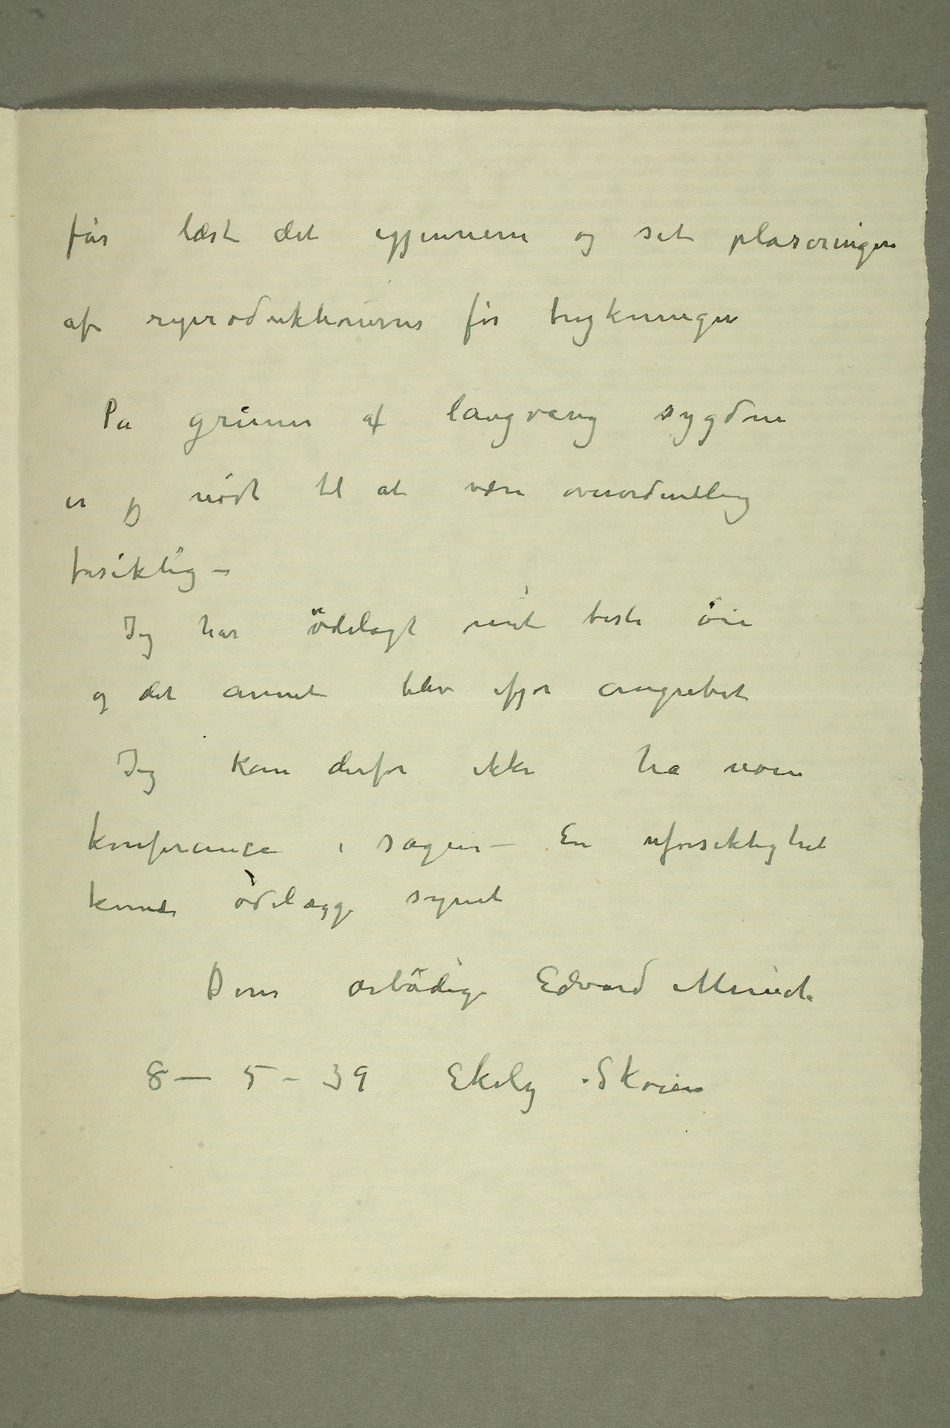 får læst det igjennem og set plaseringen
af reproduktionerne før trykningen
På grunn af langvarig sygdom
er jeg nødt til at være overordentlig
forsiktig –
Jeg har ödelagt mit beste öie
og det annet blev ifjor angrebet
Jeg kan derfor ikke ha noen
konferance i sagen – En uforsiktighet
kunde ödelægge synet
Deres ærbödige Edvard Munch
8 – 5 – 39 Ekely Sköien